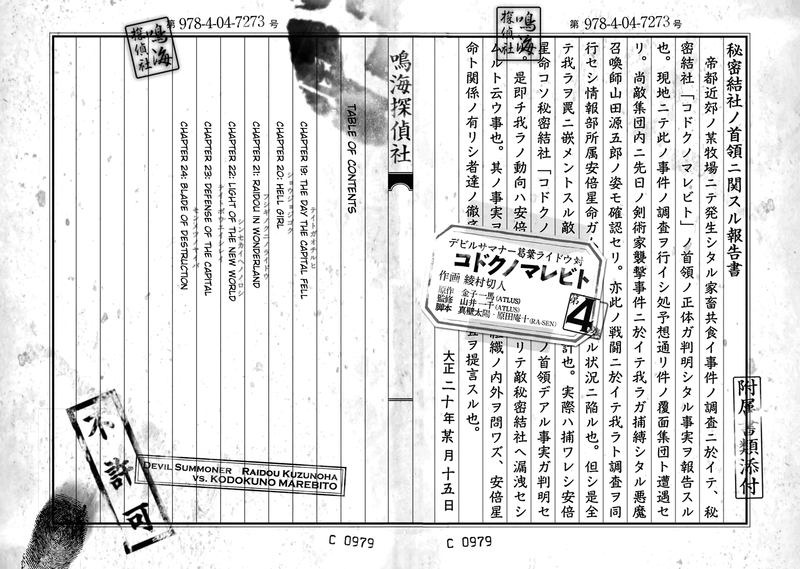 第 978-4-04-7273 号
鳴海探偵社
秘密結社ノ首領ニ関スル報告書
帝都近郊ノ某牧場ニテ発生シタル家畜共食イ事件ノ調査ニ於イテ、秘
密結社「コドクノマレビト」ノ首領ノ正体ガ判明シタル事実ヲ報告スル
也。現地ニテ此ノ事件ノ調査ヲ行イシ処予想通リ件ノ覆面集団ト遭遇セ
リ。尚敵集団内ニ先日ノ剣術家襲撃事件ニ於イテ我ラガ捕縛シタル悪魔
召喚師山田源五郎ノ姿モ確認セリ。亦此ノ戦闘ニ於イテ我ラト調査ヲ同
行セシ情報部所属安倍星命ガ
ル状況ニ陥ル也。但シ是全
テ我ラヲ罠ニ嵌メントスル敵
計也。実際ハ捕ワレシ安倍
星命コソ秘密結社「コドクノ
ノ首領デアル事実ガ判明セ
。是即チ我ラノ動向ハ安倍
リテ敵秘密結社ヘ漏洩セシ
ムルト云ウ事也。其ノ事実ヲ
組織ノ内外ヲ問ワズ、安倍星
命ト関係ノ有リシ者達ノ徹底
ヲ提言スル也。
大正二十年某月十五日
附属書類添付
デビルサマナー葛葉ライドウ対
コドクノマレビト
作画 綾村切人
原作 金子一馬(ATLUS)
監修 山井一千(ATLUS)
脚本 真壁太陽・原田庵十(RA-SEN)
第4巻
C 0979
第 978-4-04-7273 号
鳴海探偵社
鳴海探偵社
TABLE OF CONTENTS
CHAPTER 19: THE DAY THE CAPITAL FELL
CHAPTER 20: HELL GIRL
CHAPTER 21: RAIDOU IN WONDERLAND
CHAPTER 22: LIGHT OF THE NEW WORLD
CHAPTER 23: DEFENSE OF THE CAPITAL
CHAPTER 24: BLADE OF DESTRUCTION
不許可
DEVIL SUMMONER RAIDOU KUZUNOHA
VS. KODOKUNO MAREBITO
C 0979